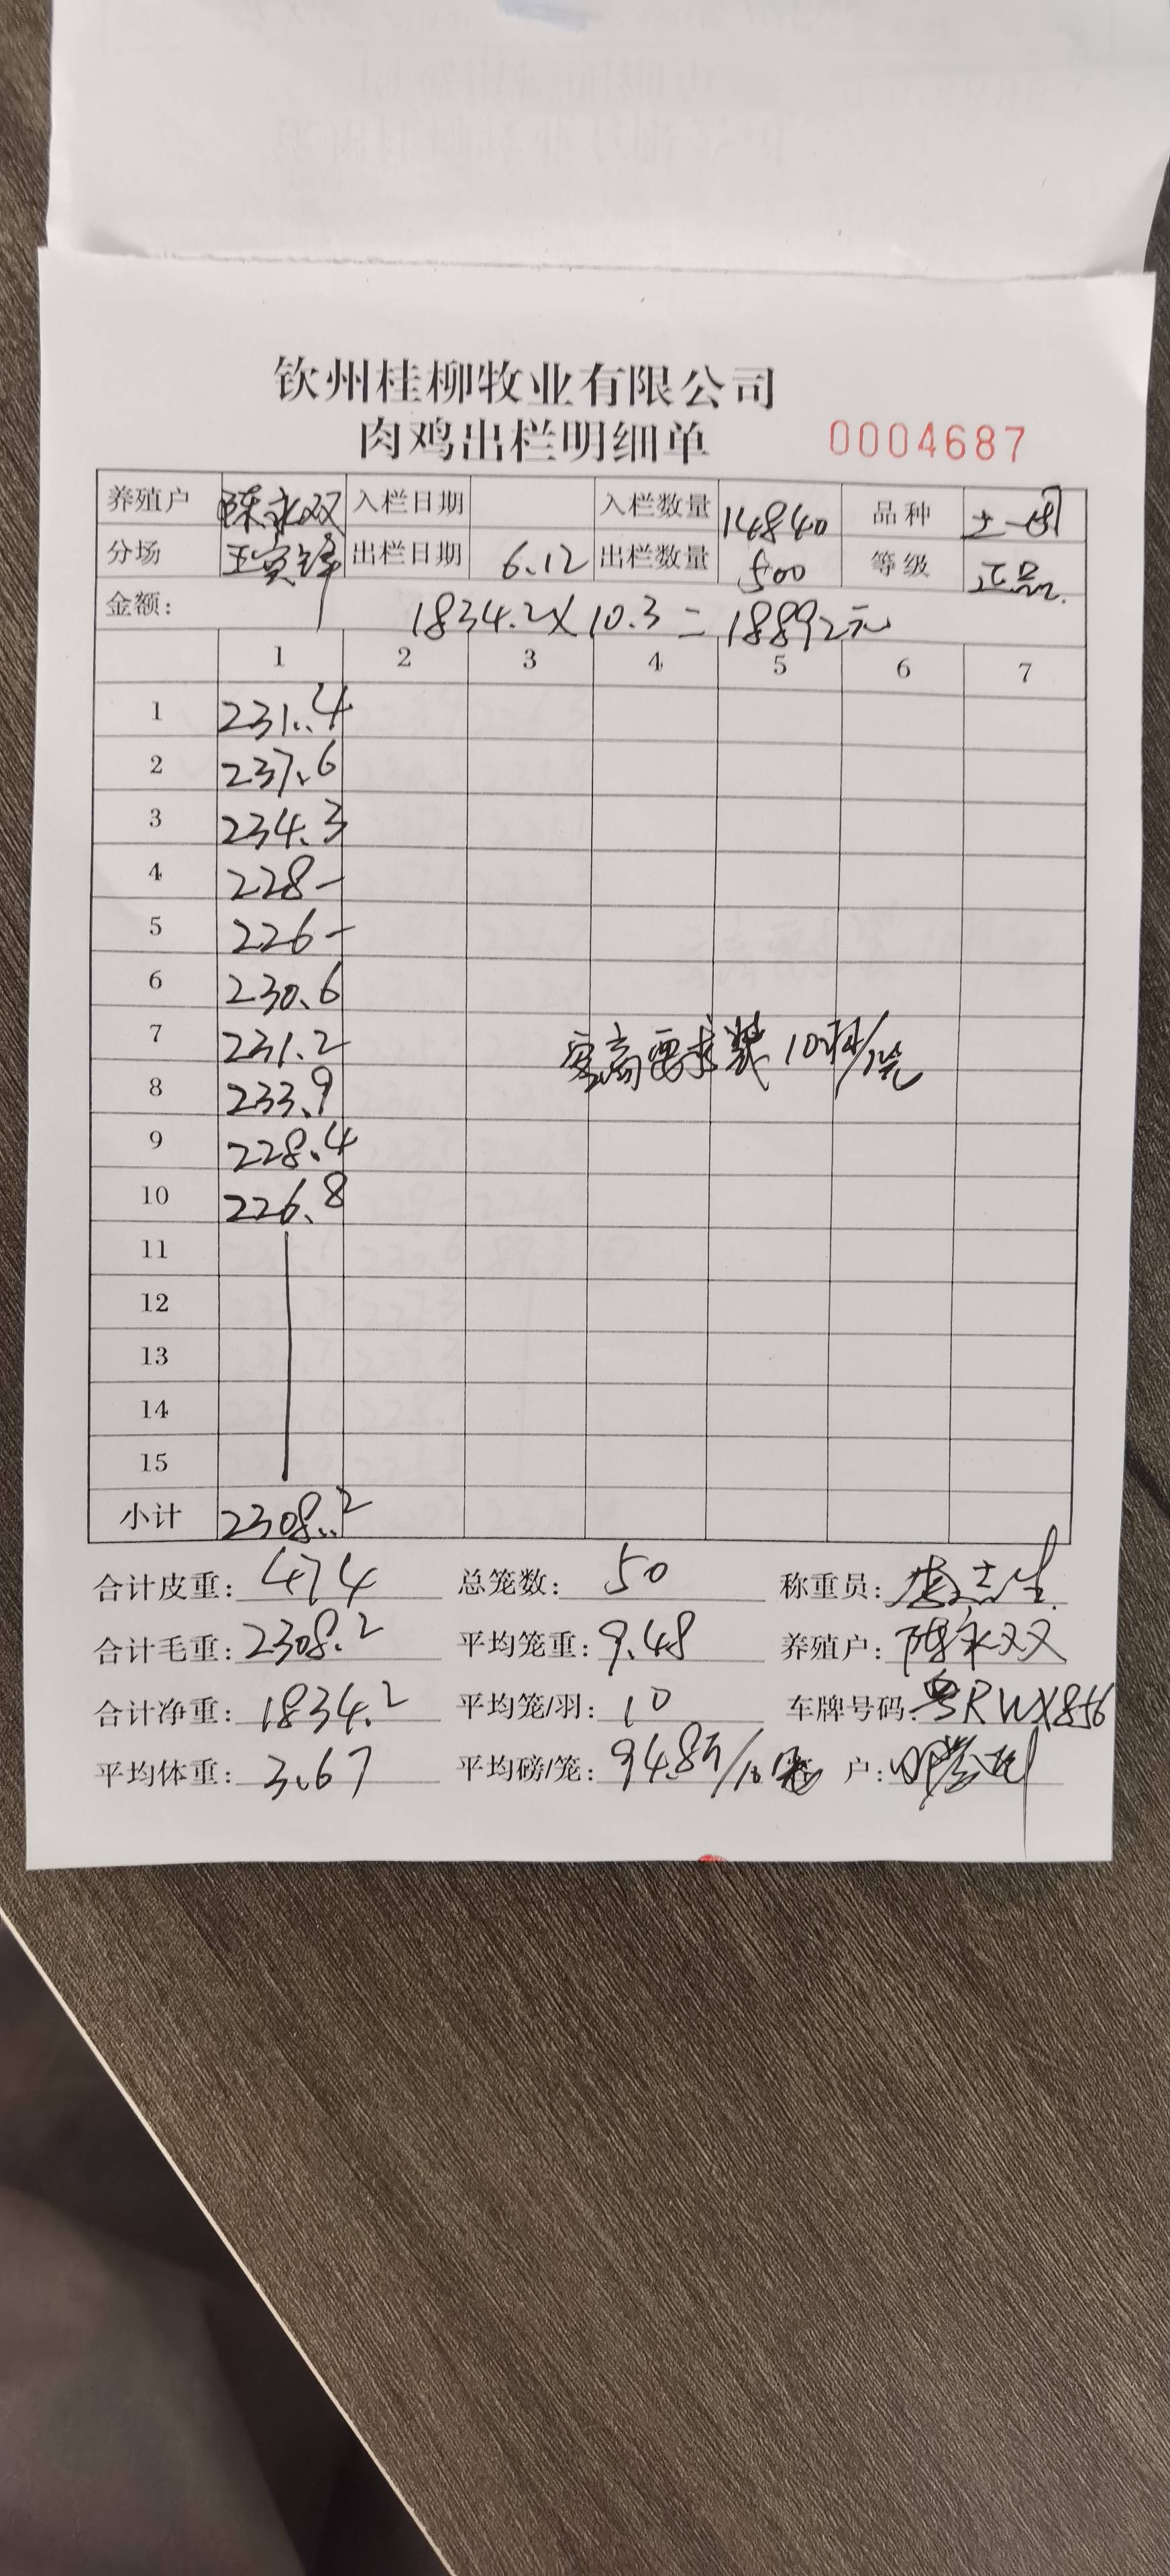 钦州桂柳牧业有限公司
肉鸡出栏明细单 0004687
养殖户 陈永双 入栏日期 入栏数量 14840 品种 土一
分场 王 出栏日期 6.12 出栏数量 500 等级 正品.
金额: 1834.2×10.3=18892元
1 2 3 4 5 6 7
1 231.4
2 237.6
3 234.3
4 228-
5 226-
6 230.6
7 231.2
要求装10只/笼
8 233.9
9 228.4
10 226.8
11
12
13
14
15
小计 2308.2
合计皮重: 474 总笼数: 50 称重员: 志生
合计毛重: 2308.2 平均笼重: 9.48 养殖户: 陈永双
合计净重: 1834.2 平均笼/羽: 10 车牌号码: 粤RWX856
平均体重: 3.67 平均磅/笼: 94.8斤/10 户: